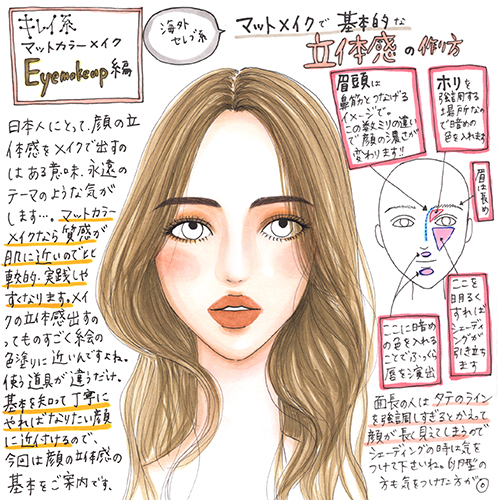 キレイ系
マットカラーメイク
Eyemakeup編
海外
セレブ系
マットメイクで基本的な
立体感の作り方
日本人にとって、顔の立
体感をメイクで出すの
はある意味、永遠の
テーマのような気が
します…。マットカラー
メイクなら質感が
肌に近いのでと
軟的・実践しや
すくなります。メイ
クの立体感出すの
ってものすごく絵の
色塗りに近いんですよね。
使う道具が違うだけ。
基本を知って丁寧に
やればなりたい顔
に近付けるので、
今回は顔の立体感の
基本をご案内です。
眉頭は
鼻筋とつなげる
イメージで。
この数ミリの違い
で顔の濃さが
変わります!!
ホリを
強調する
場所なの
で暗めの
色を入れます
眉は長め
ここを
明るく
すれば
シェーディ
ングが
引き立ち
ます
ここに暗め
の色を入れる
ことでふっくら
唇を演出
面長の人はタテのライン
を強調しすぎるとかえって
顔が長く見えてしまうので
シェーディングの時に気を
つけて下さいね。卵型の
方も気をつけた方が